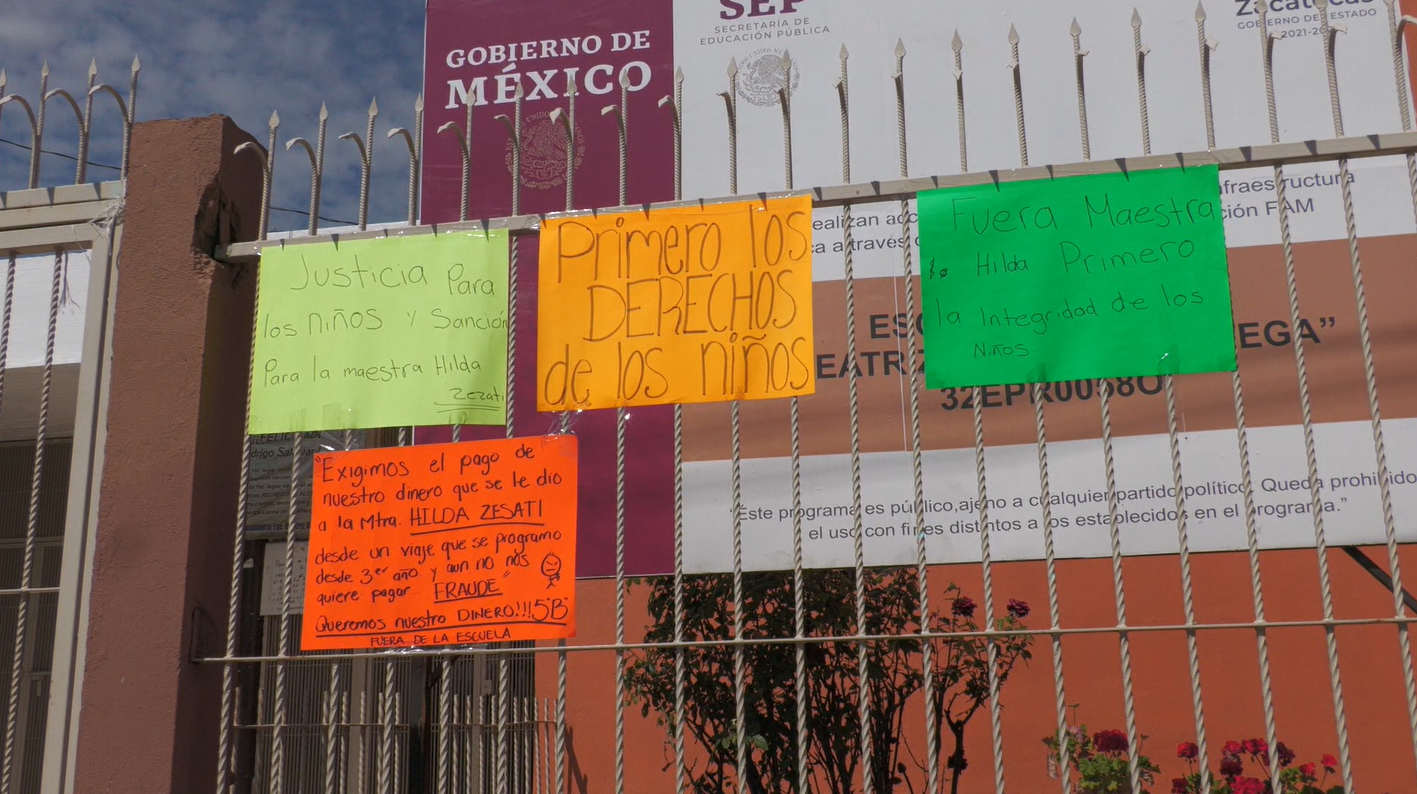 SEP
SECRETARÍA DE
EDUCACIÓN PÚBLICA
Zacatecas
GOBIERNO DEL ESTADO
GOBIERNO DE
MÉXICO
Justicia Para
los niños y Sanción
Para la maestra Hilda
Zezati
Primero los
DERECHOS
de los niños
Fuera Maestra
Hilda Primero
la Integridad de los
Niños
"Exigimos el pago de
nuestro dinero que se le dio
a la Mtra. HILDA ZESATI
desde un viaje que se programo
desde 3er año y aun no nos
quiere pagar FRAUDE"
Queremos nuestro DINERO!!! 5B
FUERA DE LA ESCUELA
ealizan
nfraestructura
a a través
ción FAM
EGA”
32EPR0058O
“Este programa es público,ajeno a cualquier partido político. Queda prohibido
el uso con fines distintos a los establecidos en el programa.”